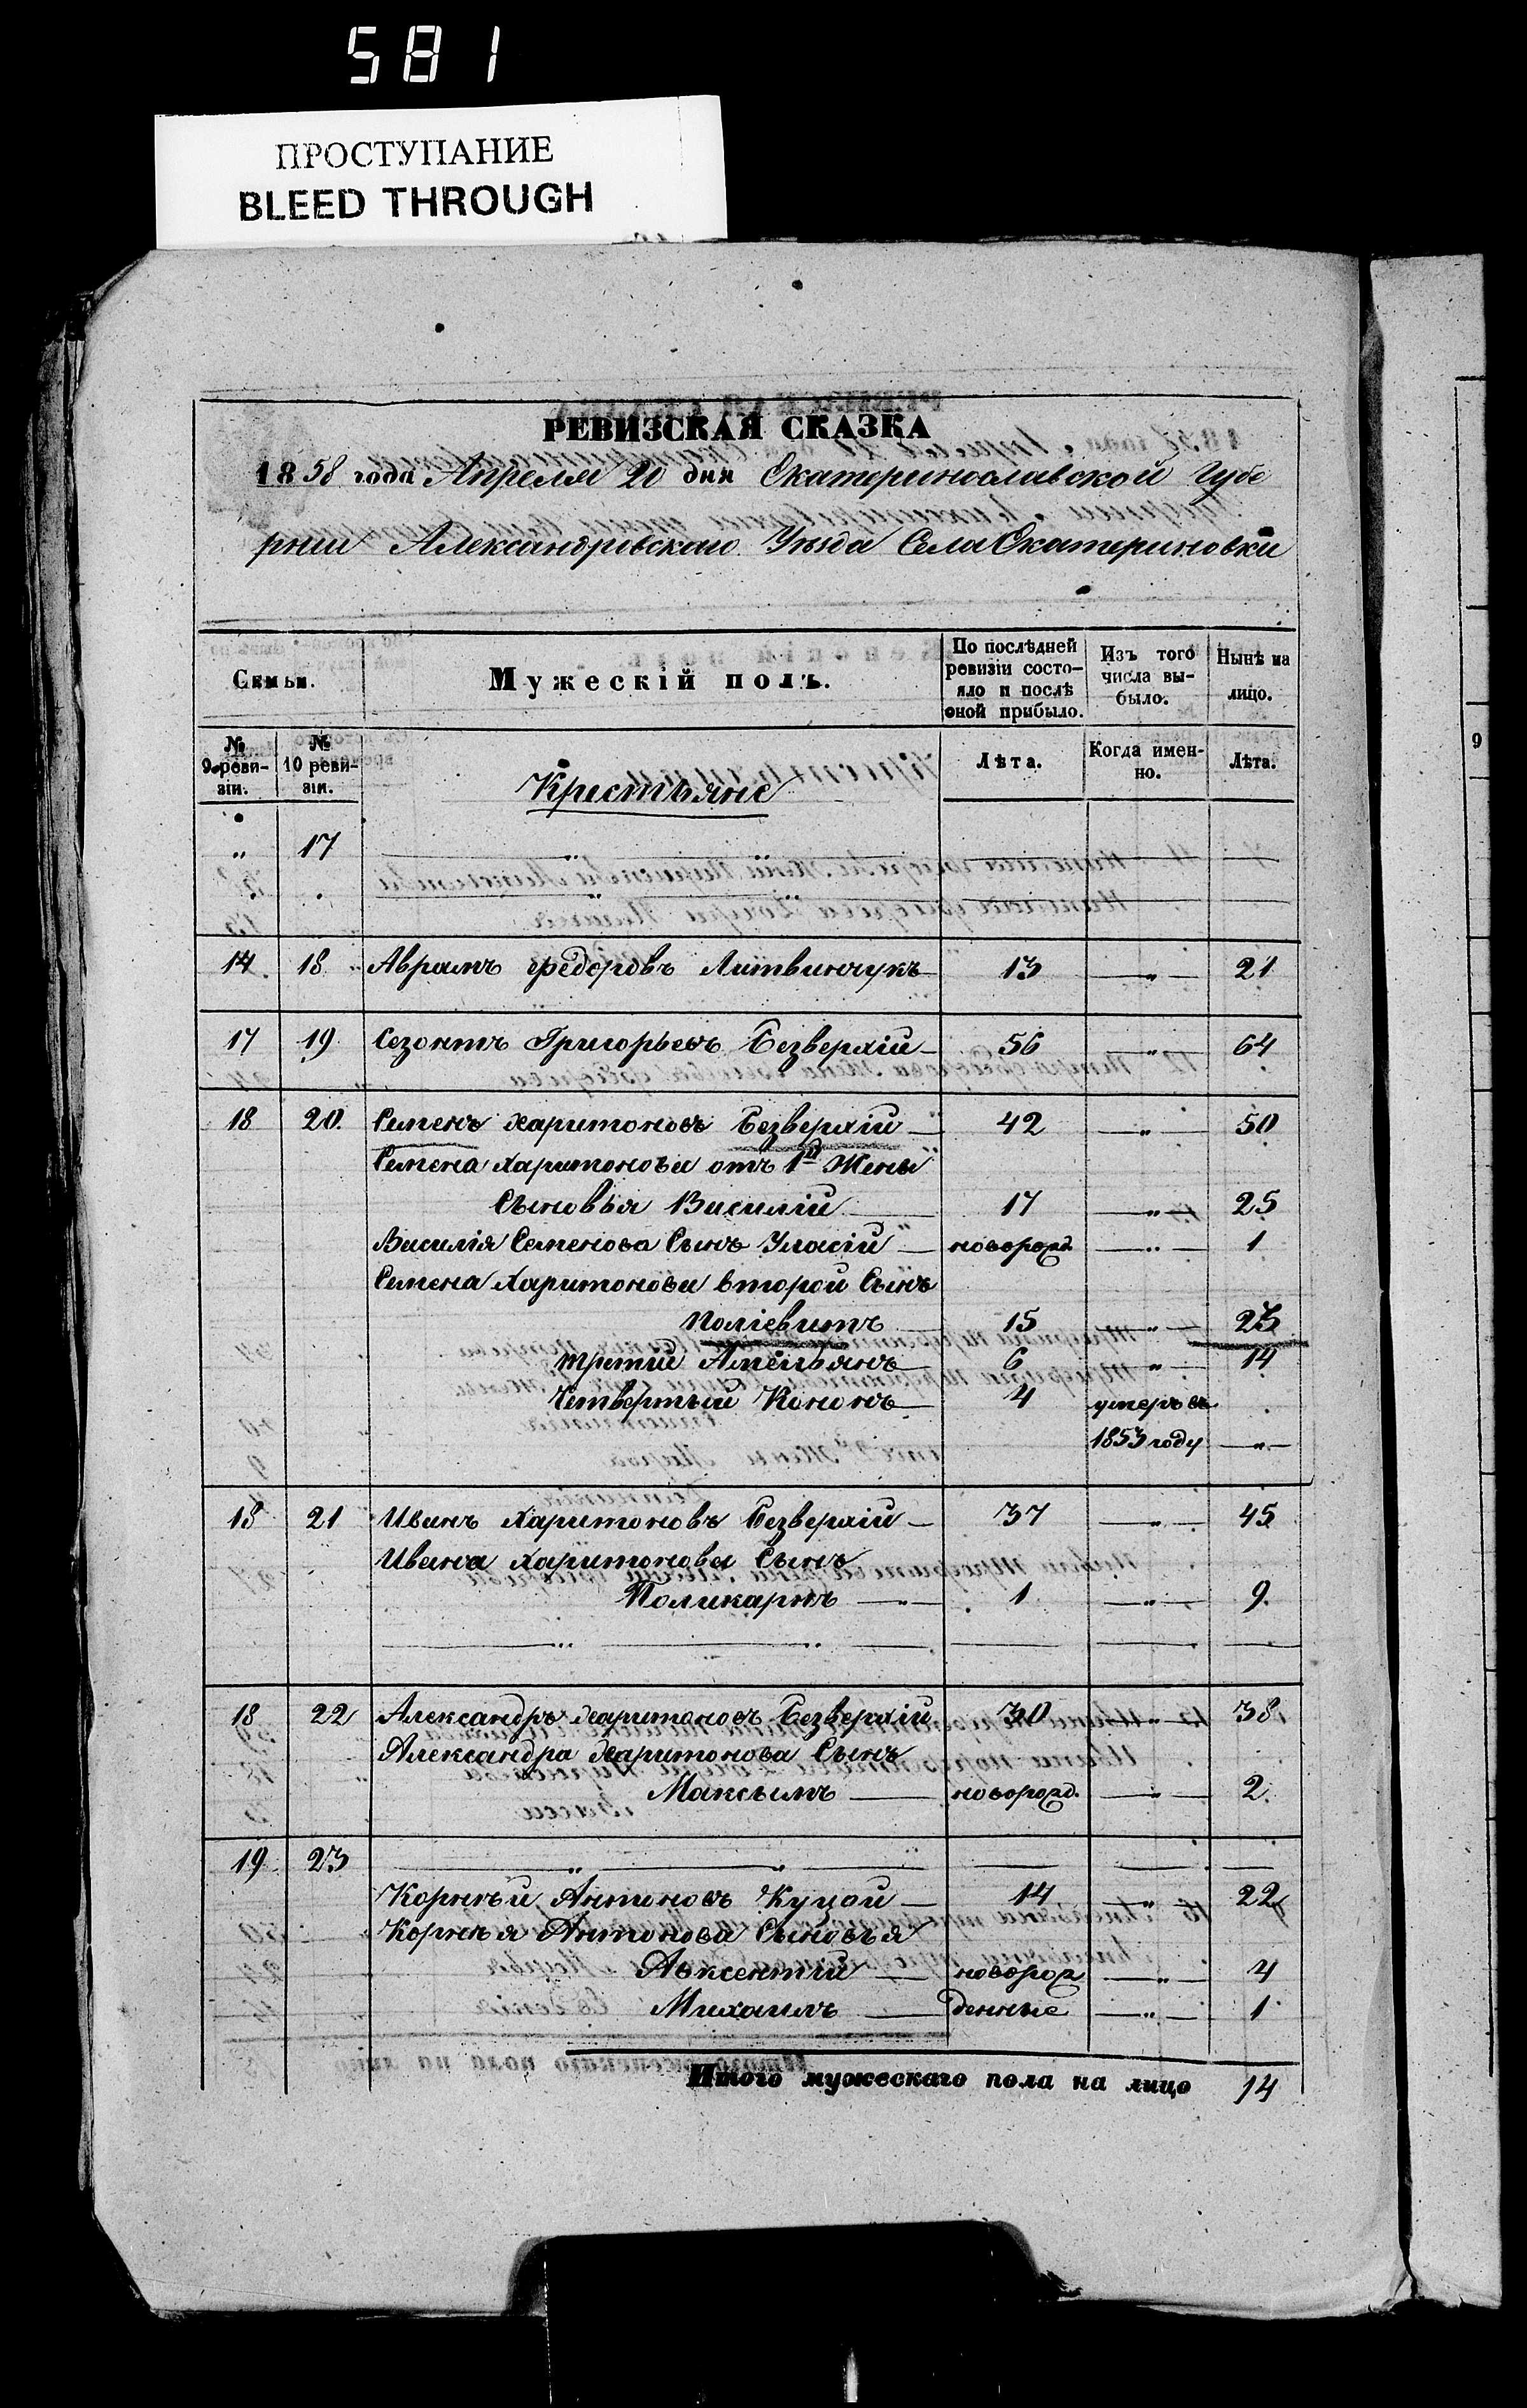 581
ПРОСТУПАНИЕ
BLEED THROUGH
РЕВИЗСКАЯ СКАЗКА
1858 года Апреля 20 дня Екатеринославской Губе
рнии Александровскаго Уезда Села Екатериновки
Семьи. Мужескій полъ. По послѣдней ревизіи состо- яло и послѣ оной прибыло. Изъ того числа вы- было. Нынѣ на лицо.
№ 9 реви- зіи. № 10 реви- зіи. Крестьяне Лѣта. Когда имен- но. Лѣта.
" 17 " "
" "
14. 18 Аврамъ Федоровъ Литвинчукъ 13 " 21
17 19 Сезонтъ Григорьевъ Безверхій 56 " 64
18 20. Семенъ Харитоновъ Безверхій 42 " 50
Семена Харитонова отъ 1й Жены
Сыновья Василій 17 " 25
Василія Семенова Сынъ Уласій новорожд. " 1
Семена Харитонова второй Сынъ
Поліевктъ 15 " 23
третій Амельянъ 6 " 14
Четвертый Кононъ 4 умеръ въ
1853 году "
18 21 Иванъ Харитоновъ Безверхій 37 " 45
Ивана Харитонова Сынъ
Поликарпъ " 1 " 9.
" "
18 22 Александръ Харитоновъ Безверхій 30 " 38
Александра Харитонова Сынъ
Максымъ новорожд. " 2.
19 23 " "
Корнѣй Антоновъ Куцой 14 " 22
Корнѣя Антонова Сыновья
Авксентій новорож " 4
Михаилъ денные " 1
Итого мужескаго пола на лицо 14
9